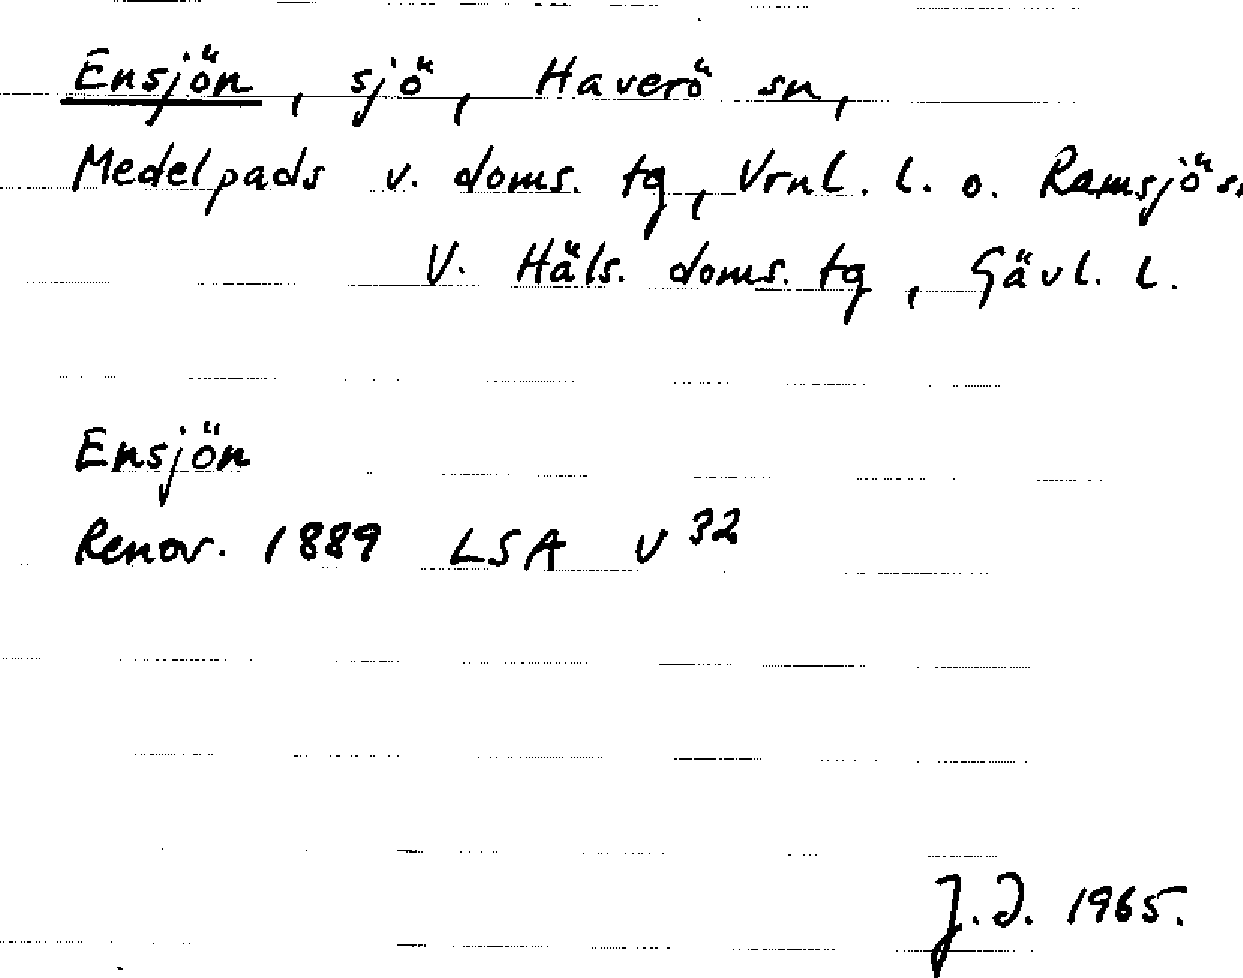 Ensjön, sjö, Haverö sn,
Medelpads v. doms. tg, Vrnl. l. o. Ramsjö s.
V. Häls. doms. tg, Gävl. l.
Ensjön
Renov. 1889 LSA V 32
J.D. 1965.